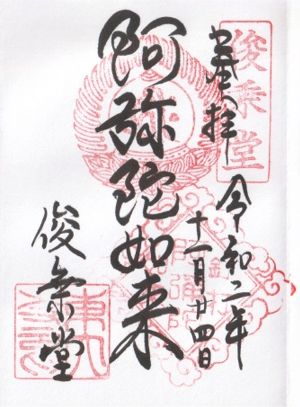 奉拝
俊乗堂
令和二年
十一月廿四日
阿弥陀如来
俊乗堂